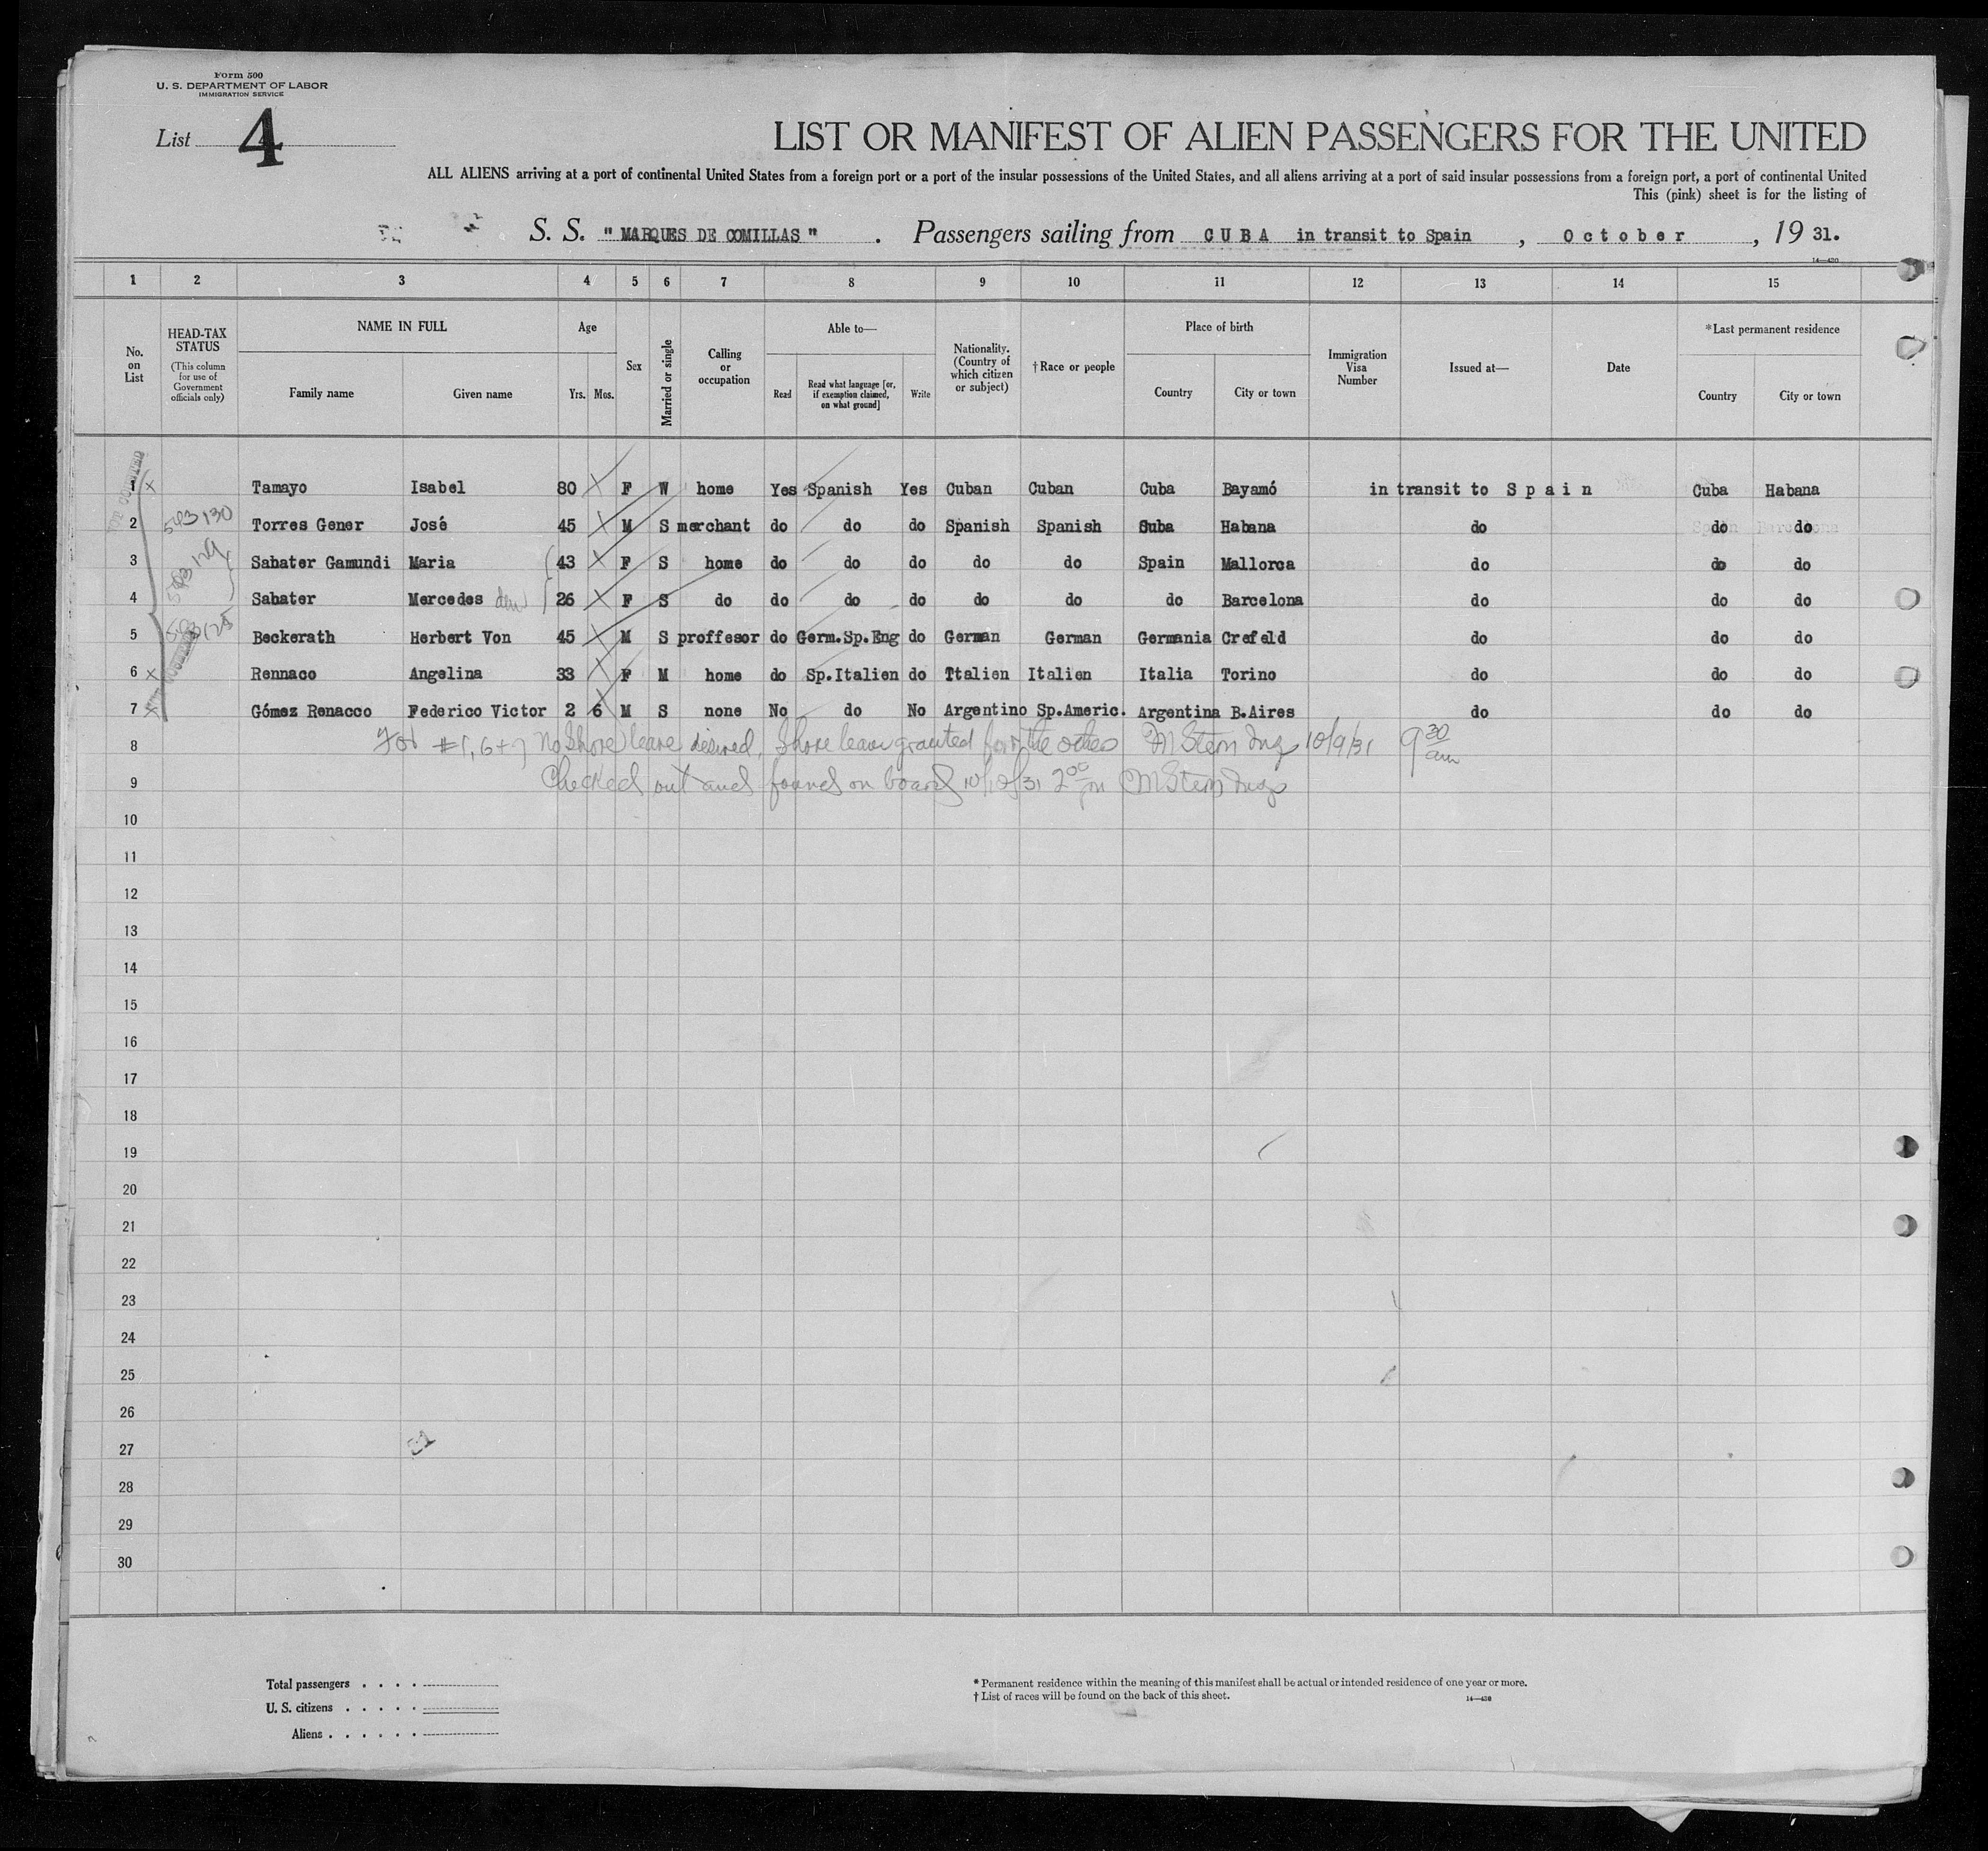 Form 500
U. S. DEPARTMENT OF LABOR
IMMIGRATION SERVICE
List 4
LIST OR MANIFEST OF ALIEN PASSENGERS FOR THE UNITED
ALL ALIENS arriving at a port of continental United States from a foreign port or a port of the insular possessions of the United States, and all aliens arriving at a port of said insular possessions from a foreign port, a port of continental United
This (pink) sheet is for the listing of
S. S. "MARQUES DE COMILLAS". Passengers sailing from CUBA in transit to Spain, October, 1931.
14—430
1 2 3 4 5 6 7 8 9 10 11 12 13 14 15
No. on List
HEAD-TAX STATUS (This column for use of Government officials only)
NAME IN FULL Family name Given name
Age Yrs. Mos.
Sex
Married or single
Calling or occupation
Able to— Read Read what language [or, if exemption claimed, on what ground] Write
Nationality. (Country of which citizen or subject)
†Race or people
Place of birth Country City or town
Immigration Visa Number
Issued at—
Date
*Last permanent residence Country City or town
1 x Tamayo Isabel 80 F W home Yes Spanish Yes Cuban Cuban Cuba Bayamó in transit to Spain Cuba Habana
2 593130 Torres Gener José 45 M S merchant do do do Spanish Spanish Cuba Habana do do do
3 Sabater Gamundi Maria 43 F S home do do do do do Spain Mallorca do do do
4 Sabater Mercedes 26 F S do do do do do do do Barcelona do do do
5 Beckerath Herbert Von 45 M S proffesor do Germ.Sp.Eng do German German Germania Crefeld do do do
6 x Rennaco Angelina 33 F M home do Sp.Italien do Ttalien Italien Italia Torino do do do
7 x Gómez Renacco Federico Victor 2 6 M S none No do No Argentino Sp.Americ. Argentina B.Aires do do do
8 For #1, 6+7 no shore leave desired, Shore leave granted for the others M Stern Insp 10/9/31 9 30 am
9 Checked out and found on board 10/10/31 2 00 pm M Stern Insp
10
11
12
13
14
15
16
17
18
19
20
21
22
23
24
25
26
27
28
29
30
Total passengers . . . .
U. S. citizens . . . . .
Aliens . . . . . .
* Permanent residence within the meaning of this manifest shall be actual or intended residence of one year or more.
† List of races will be found on the back of this sheet.
14—430